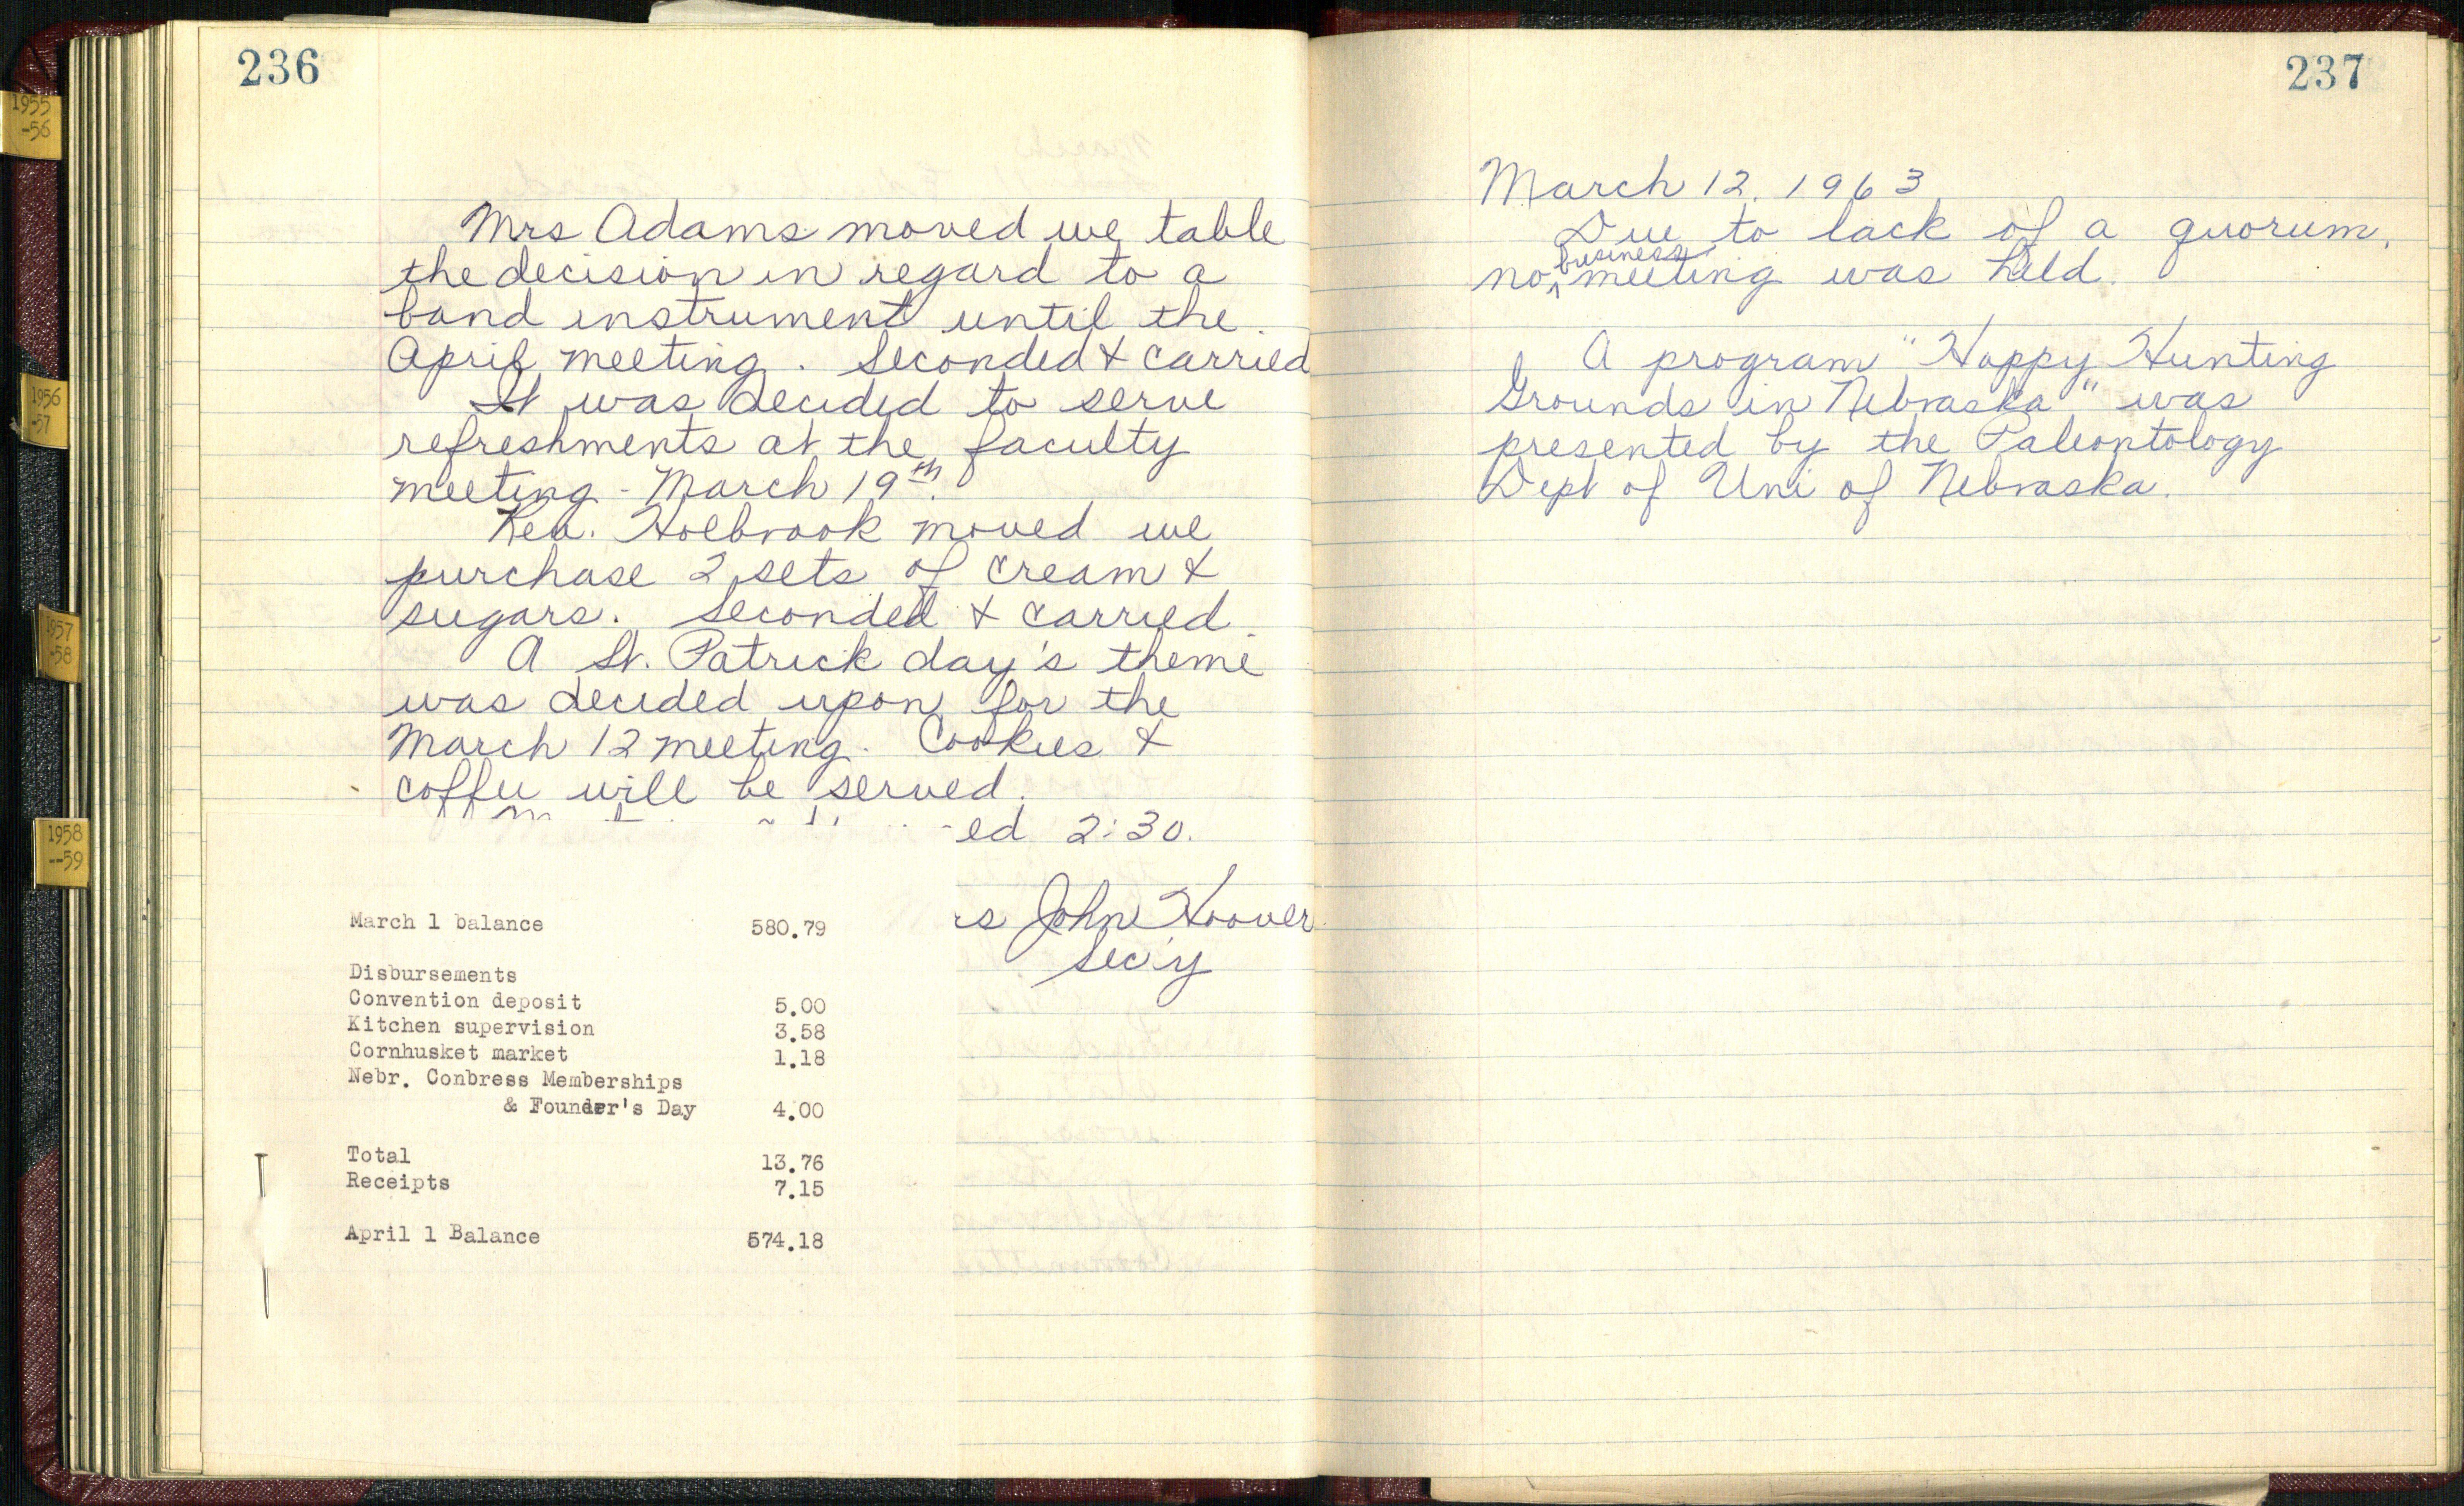 1955
-56
1956
-57
1957
-58
1958
--59
236
Mrs Adams moved we table
the decision in regard to a
band instrument until the
April meeting. Seconded & carried
It was decided to serve
refreshments at the faculty
meeting - March 19th.
Rev. Holbrook moved we
purchase 2 sets of cream &
sugars. Seconded & carried.
A St. Patrick day's theme
was decided upon for the
March 12 meeting. Cookies &
coffee will be served.
ed 2:30.
rs John Hoover
Sec'y
March 1 balance 580.79
Disbursements
Convention deposit 5.00
Kitchen supervision 3.58
Cornhusket market 1.18
Nebr. Conbress Memberships
& Founder's Day 4.00
Total 13.76
Receipts 7.15
April 1 Balance 574.18
237
March 12, 1963
Due to lack of a quorum,
no business meeting was held.
A program "Happy Hunting
Grounds in Nebraska" was
presented by the Paleontology
Dept of Uni of Nebraska.